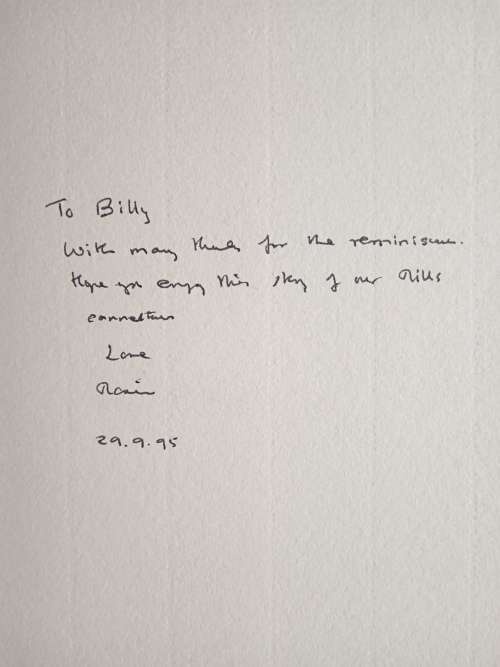 To Billy
With many thanks for the reminiscence.
Hope you enjoy this story of our
connections
Love
29.9.95